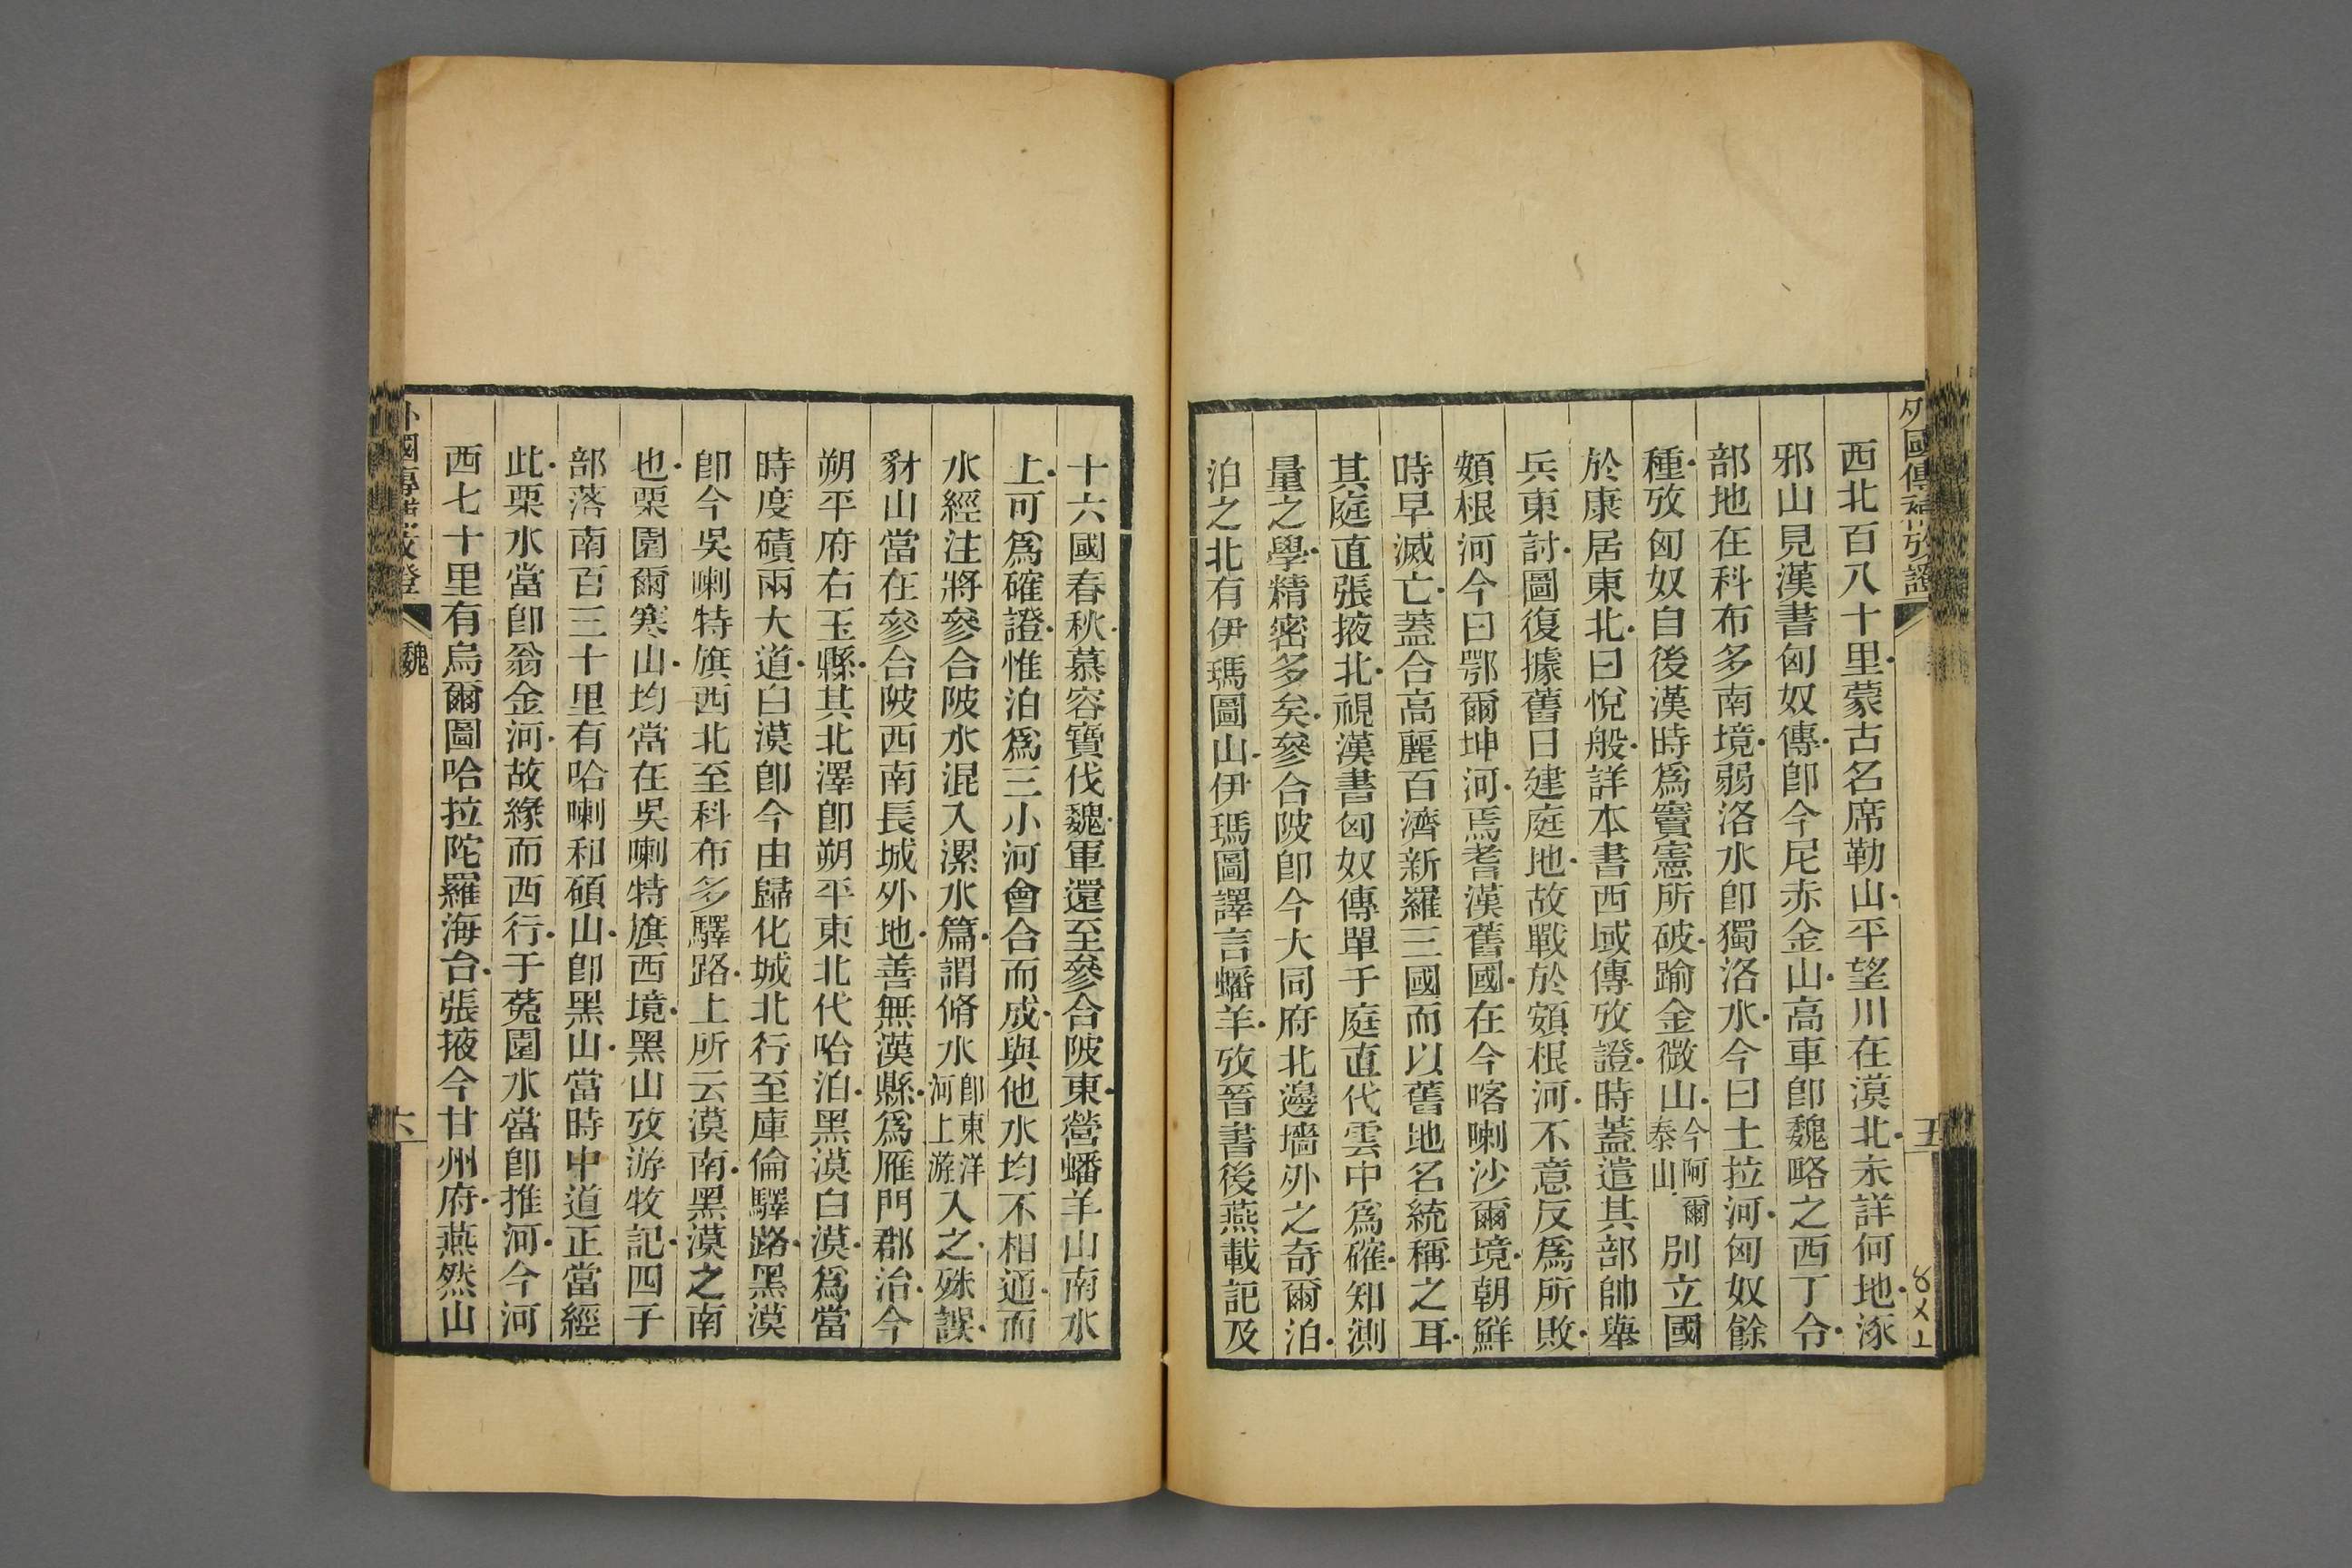 西北百八十里蒙古名席勒山平望川在漠北未詳何地涿
邪山見漢書匈奴傳卽今尼赤金山高車卽魏略之西丁令
部地在科布多南境弱洛水卽獨洛水今曰土拉河匈奴餘
種攷匈奴自後漢時爲竇憲所破踰金微山今阿爾泰山別立國
於康居東北曰悅般詳本書西域傳攷證時蓋遣其部帥舉
兵東討圖復據舊日建庭地故戰於頞根河不意反爲所敗
頞根河今曰鄂爾坤河焉耆漢舊國在今喀喇沙爾境朝鮮
時早滅亡蓋合高麗百濟新羅三國而以舊地名統稱之耳
其庭直張掖北視漢書匈奴傳單于庭直代雲中爲確知測
量之學精密多矣參合陂卽今大同府北邊墻外之奇爾泊
泊之北有伊瑪圖山伊瑪圖譯言蟠羊攷晉書後燕載記及
五
十六國春秋慕容寶伐魏軍還至參合陂東營蟠羊山南水
上可爲確證惟泊爲三小河會合而成與他水均不相通而
水經注將參合陂水混入漯水篇謂脩水卽東洋河上游入之殊誤
豺山當在參合陂西南長城外地善無漢縣爲雁門郡治今
朔平府右玉縣其北澤卽朔平東北代哈泊黑漠白漠爲當
時度磧兩大道白漠卽今由歸化城北行至庫倫驛路黑漠
卽今吳喇特旗西北至科布多驛路上所云漠南黑漠之南
也栗園爾寒山均當在吳喇特旗西境黑山攷游牧記四子
部落南百三十里有哈喇和碩山卽黑山當時中道正當經
此栗水當卽翁金河故緣而西行于菟園水當卽推河今河
西七十里有烏爾圖哈拉陀羅海台張掖今甘州府燕然山
魏
六